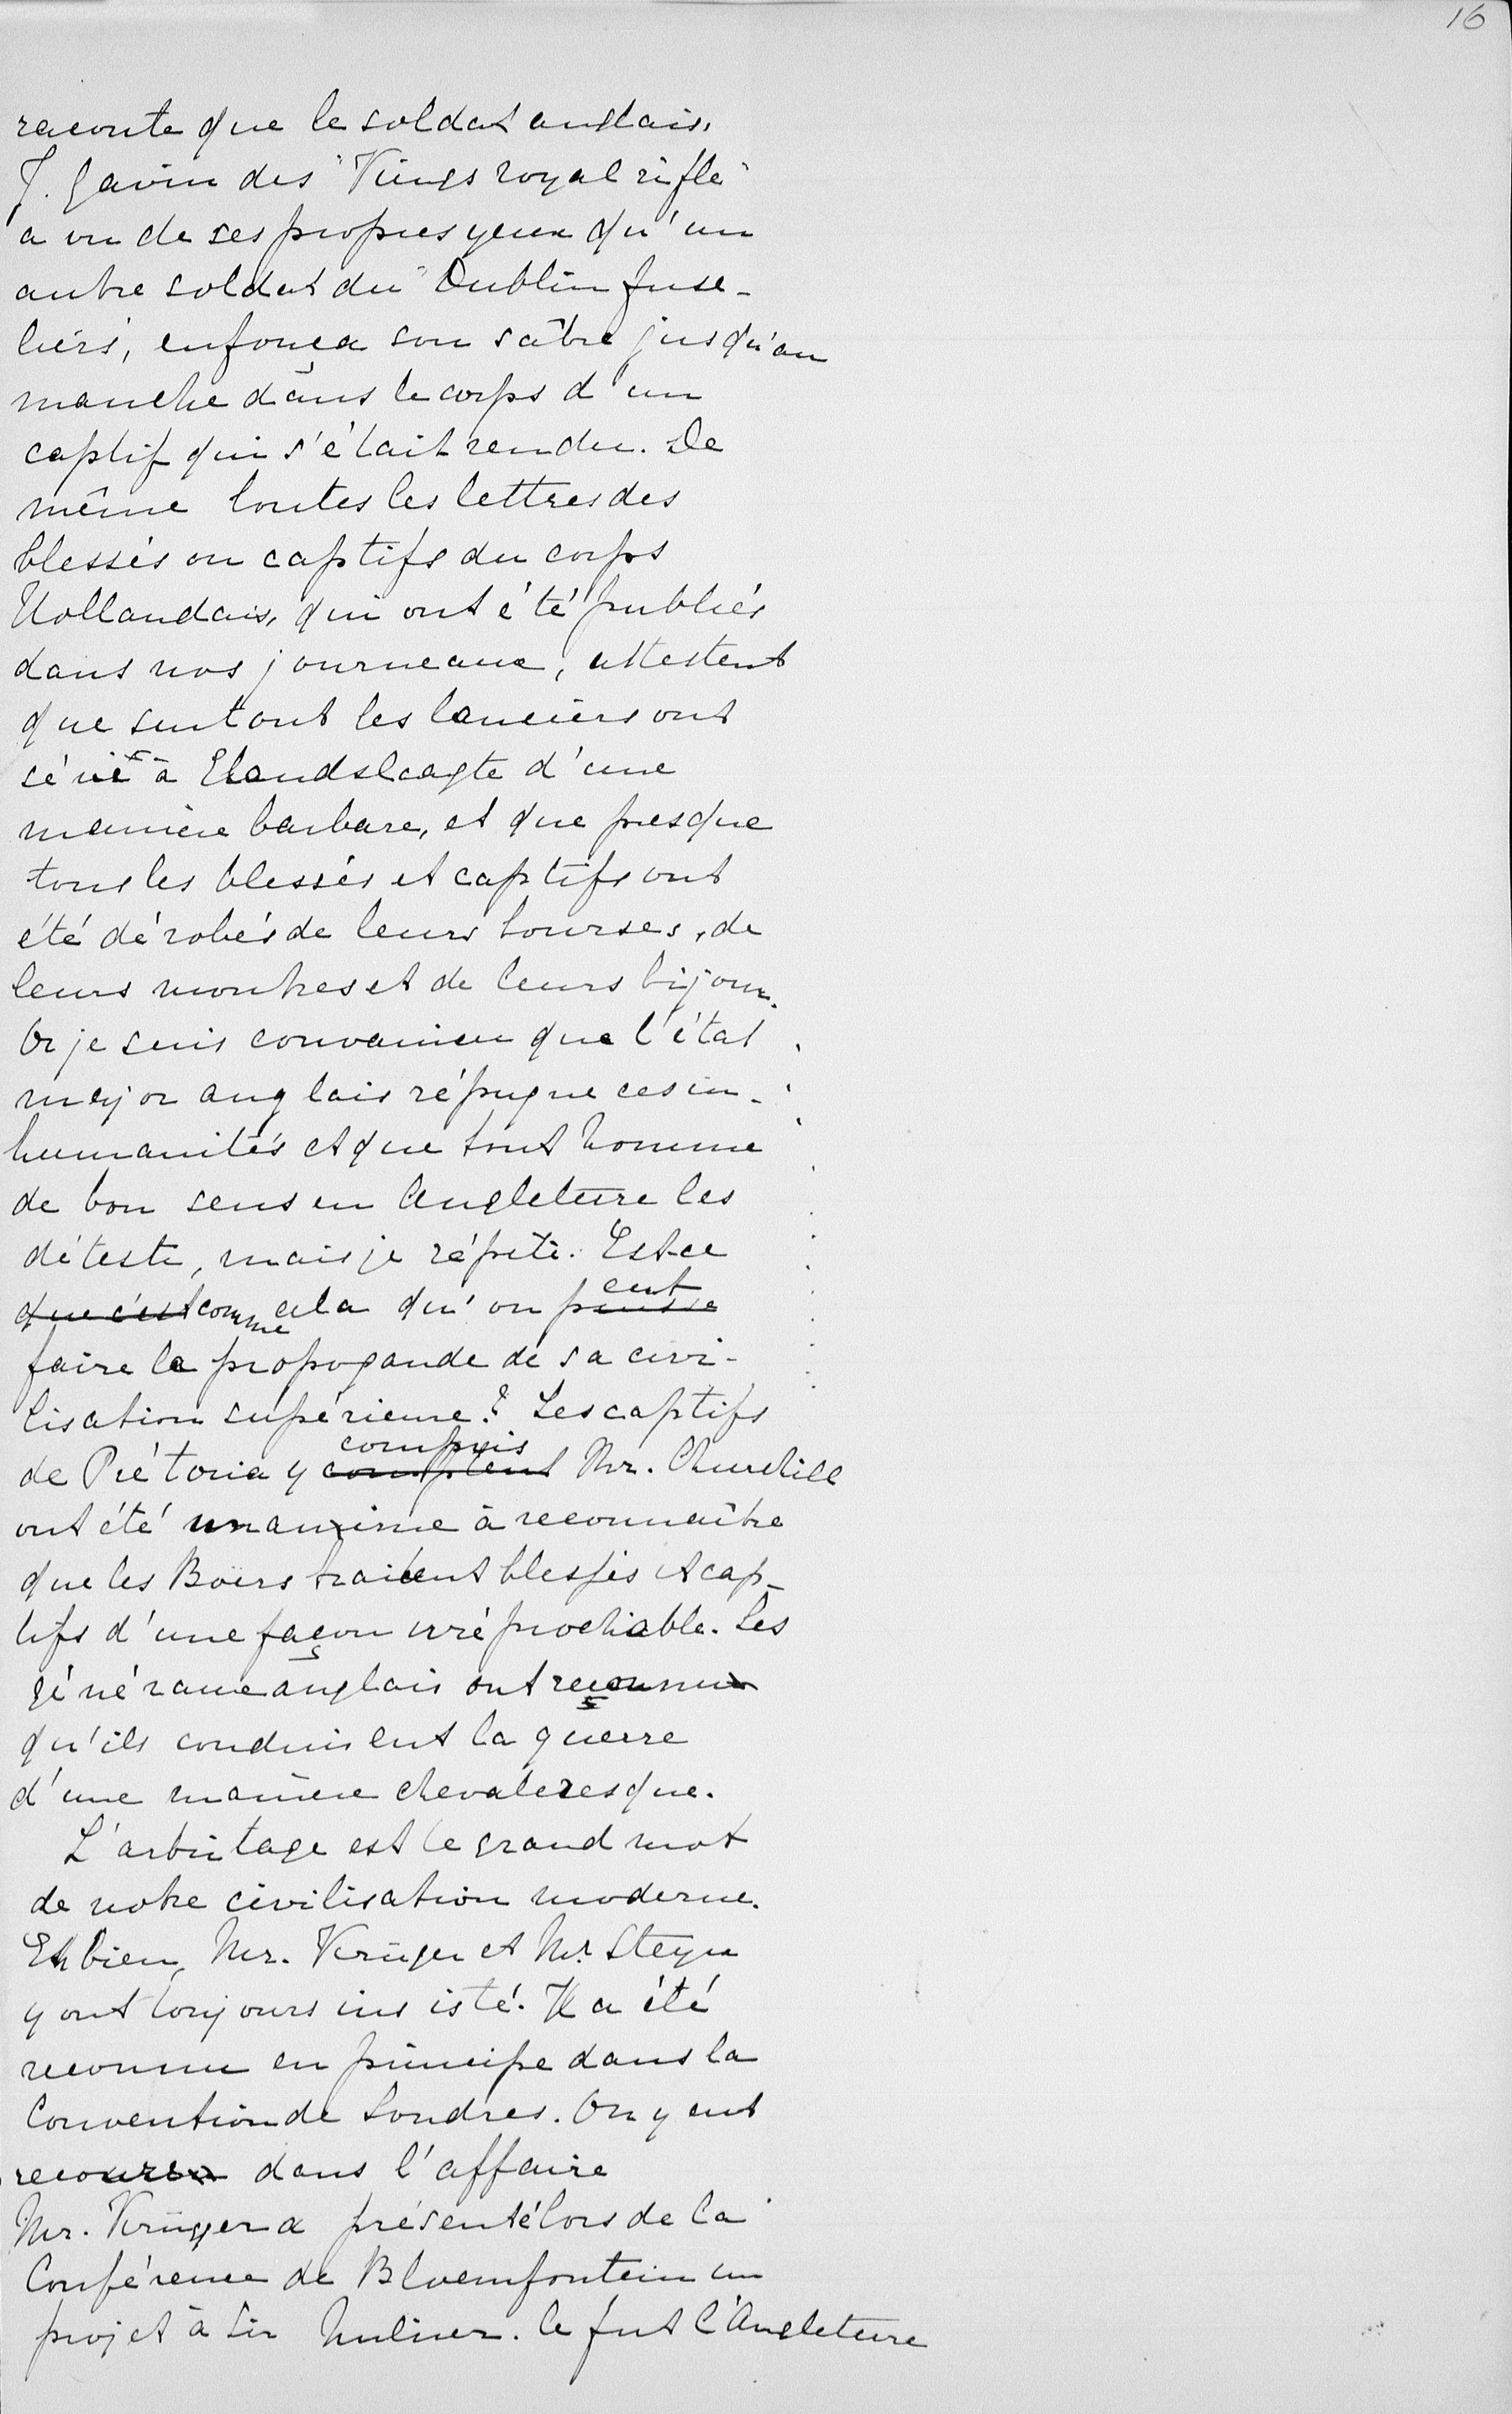 16
raconte que le soldat anglais,
J. Gavin des "Kings royal rifle"
a vu de ses propres yeux qu'un
autre soldat du "Dublin fuse-
liers, enfonça son sâbre jusqu'au
manche dans le corps d'un
captif qui s'était rendu. De
même toutes les lettres des
blessés ou captifs du corps
Hollandais, qui ont été publiés
dans nos journeaux, attestent
que surtout les lanciers ont
sévi à Elandslaagte d'une
manière barbare, et que presque
tous les blessés et captifs ont
été dérobés de leurs bourses, de
leurs montres et de leurs bijoux.
Or je suis convaincu que l'état
major anglais répugne ces in-
humanités et que tout homme
de bon sens en Angleterre les
déteste, mais je répète. Est-ce
que c'est comme cela qu'on puisse eut
faire la propogande de sa civi-
lisation supérieure? Les captifs
de Prétoria y comptent compris Mr. Churchill
ont été unanime à reconnaître
que les Boërs traitent blessés et cap-
tifs d'une façon irréprochable. Les
généraux anglais ont reconnu
qu'ils conduisent la guerre
d'une manière chevaleresque.
L'arbitage est le grand mot
de notre civilisation moderne.
Eh bien, Mr. Krüger et Mr. Steyn
y ont toujours insisté. Il a été
reconnu en principe dans la
Convention de Londres. On y eut
recours dans l'affaire
Mr. Krüger a présenté lors de la
Conférence de Bloemfontein un
projet à Sir Milner. Ce fut l'Angleterre